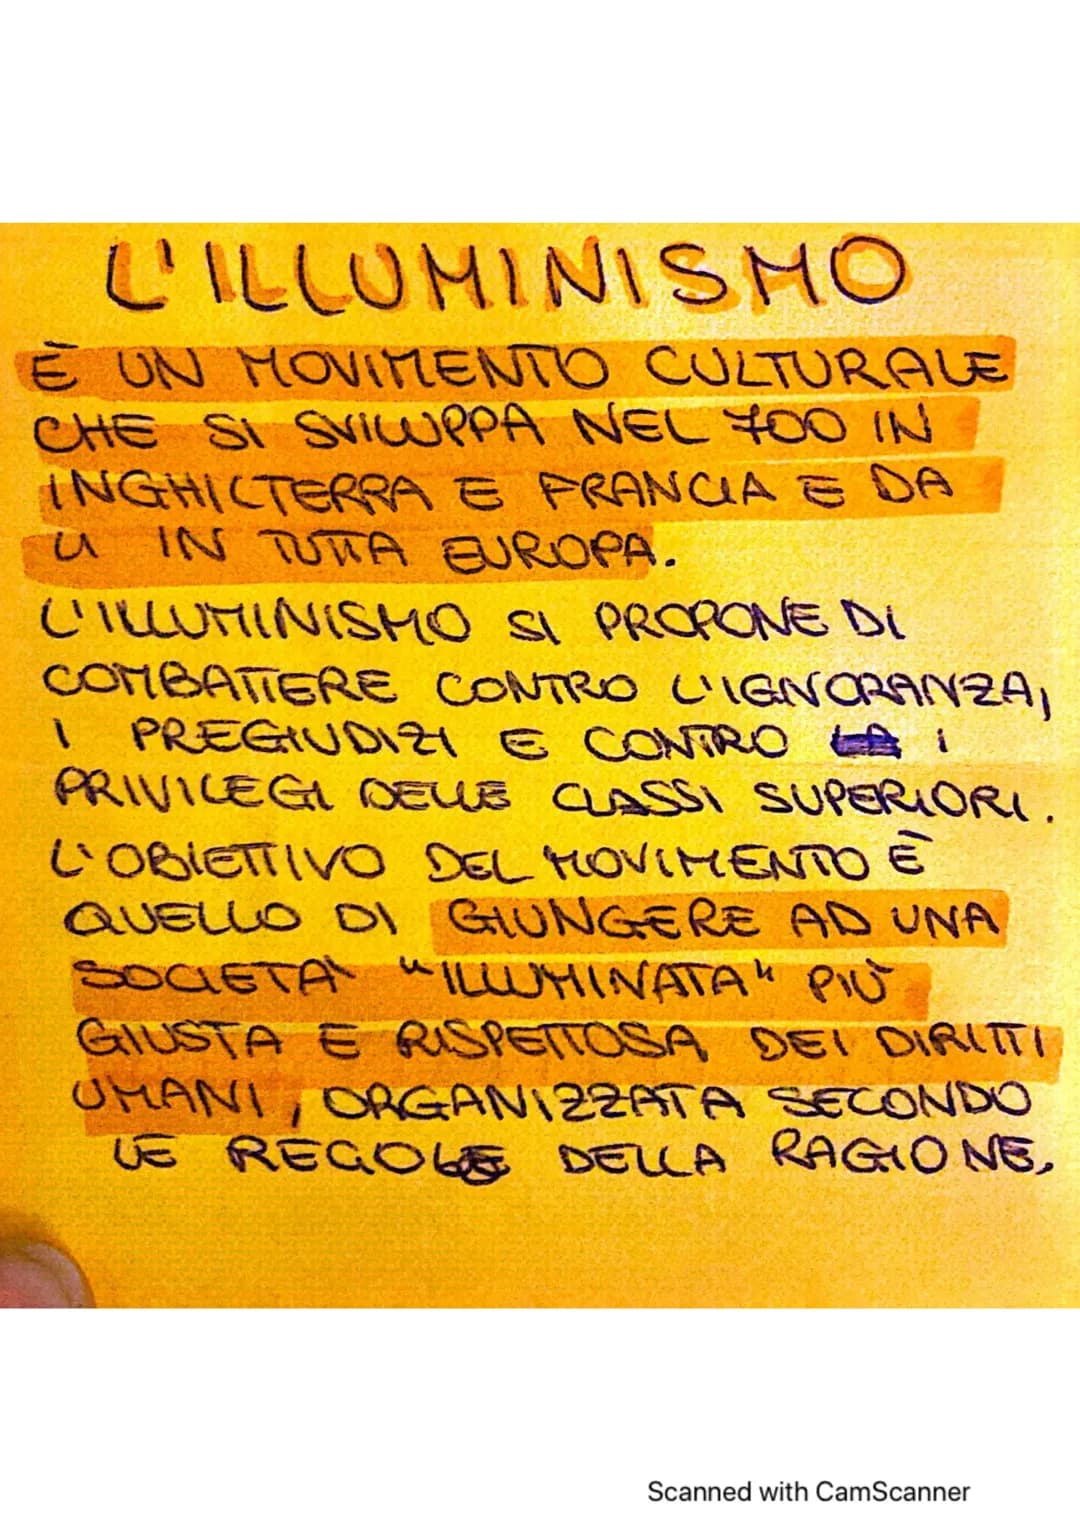 L'ILLUMINISMO
È UN MOVIMENTO CULTURALE
CHE SI SVILUPPA NEL 700 IN
INGHILTERRA E FRANCIA E DA
LI IN TUTTA EUROPA.
L'ILLUMINISMO SI PROPONE DI
COMBATTERE CONTRO L'IGNORANZA,
I PREGIUDIZI E CONTRO I
PRIVILEGI DELLE CLASSI SUPERIORI.
L'OBIETTIVO DEL MOVIMENTO È
QUELLO DI GIUNGERE AD UNA
SOCIETÀ "ILLUMINATA" PIÙ
GIUSTA E RISPETTOSA DEI DIRITTI
UMANI, ORGANIZZATA SECONDO
LE REGOLE DELLA RAGIONE.
Scanned with CamScanner